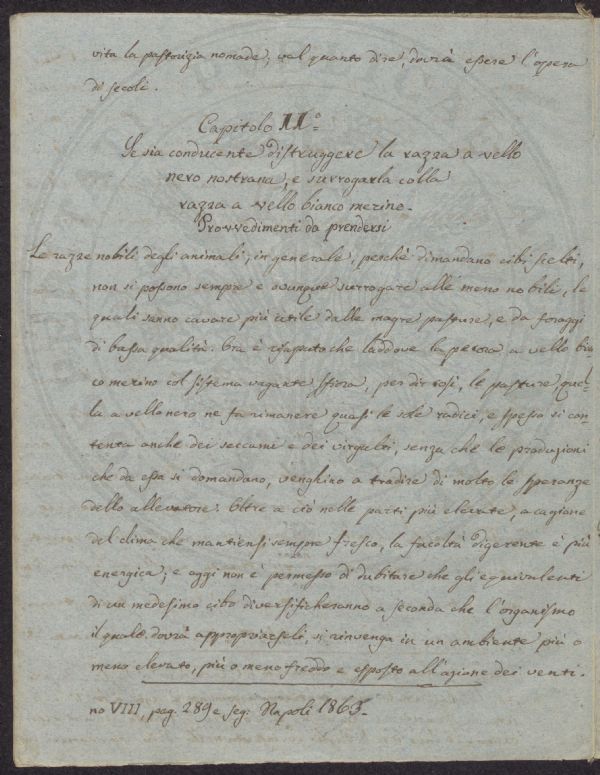 vita la pastorizia nomade, val quanto dire, dovrà essere l'opera
di secoli.
Capitolo II°
Se sia conducente distruggere la razza a vello
nero nostrana, e surrogarla colla
razza a vello bianco merino.
Provvedimenti da prendersi
Le razze nobili degli animali, in generale, perchè dimandano cibi scelti,
non si possono sempre e ovunque surrogare alle meno nobili, le
quali sanno cavare più utile dalle magre pasture, e da foraggi
di bassa qualità. Ora è risaputo che laddove la pecora a vello bian
co merino col sistema vagante sfiora, per dir così, le pasture, quel-
la a vello nero ne fa rimanere quasi le sole radici, e spesso si con-
tenta anche dei seccumi e dei virgulti, senza che le produzioni
che da essa si domandano, venghino a tradire di molto le speranze
dello allevatore. Oltre a ciò nelle parti più elevate, a cagione
del clima che mantiensi sempre fresco, la facoltà digerente è più
energica; e oggi non è permesso di dubitare che gli equivalenti
di un medesimo cibo diversificheranno a seconda che l'organismo
il quale dovrà appropriarseli, si rinvenga in un ambiente più o
meno elevato, più o meno freddo e esposto all'azione dei venti.
no VIII, pag. 289 e seg. Napoli 1863.